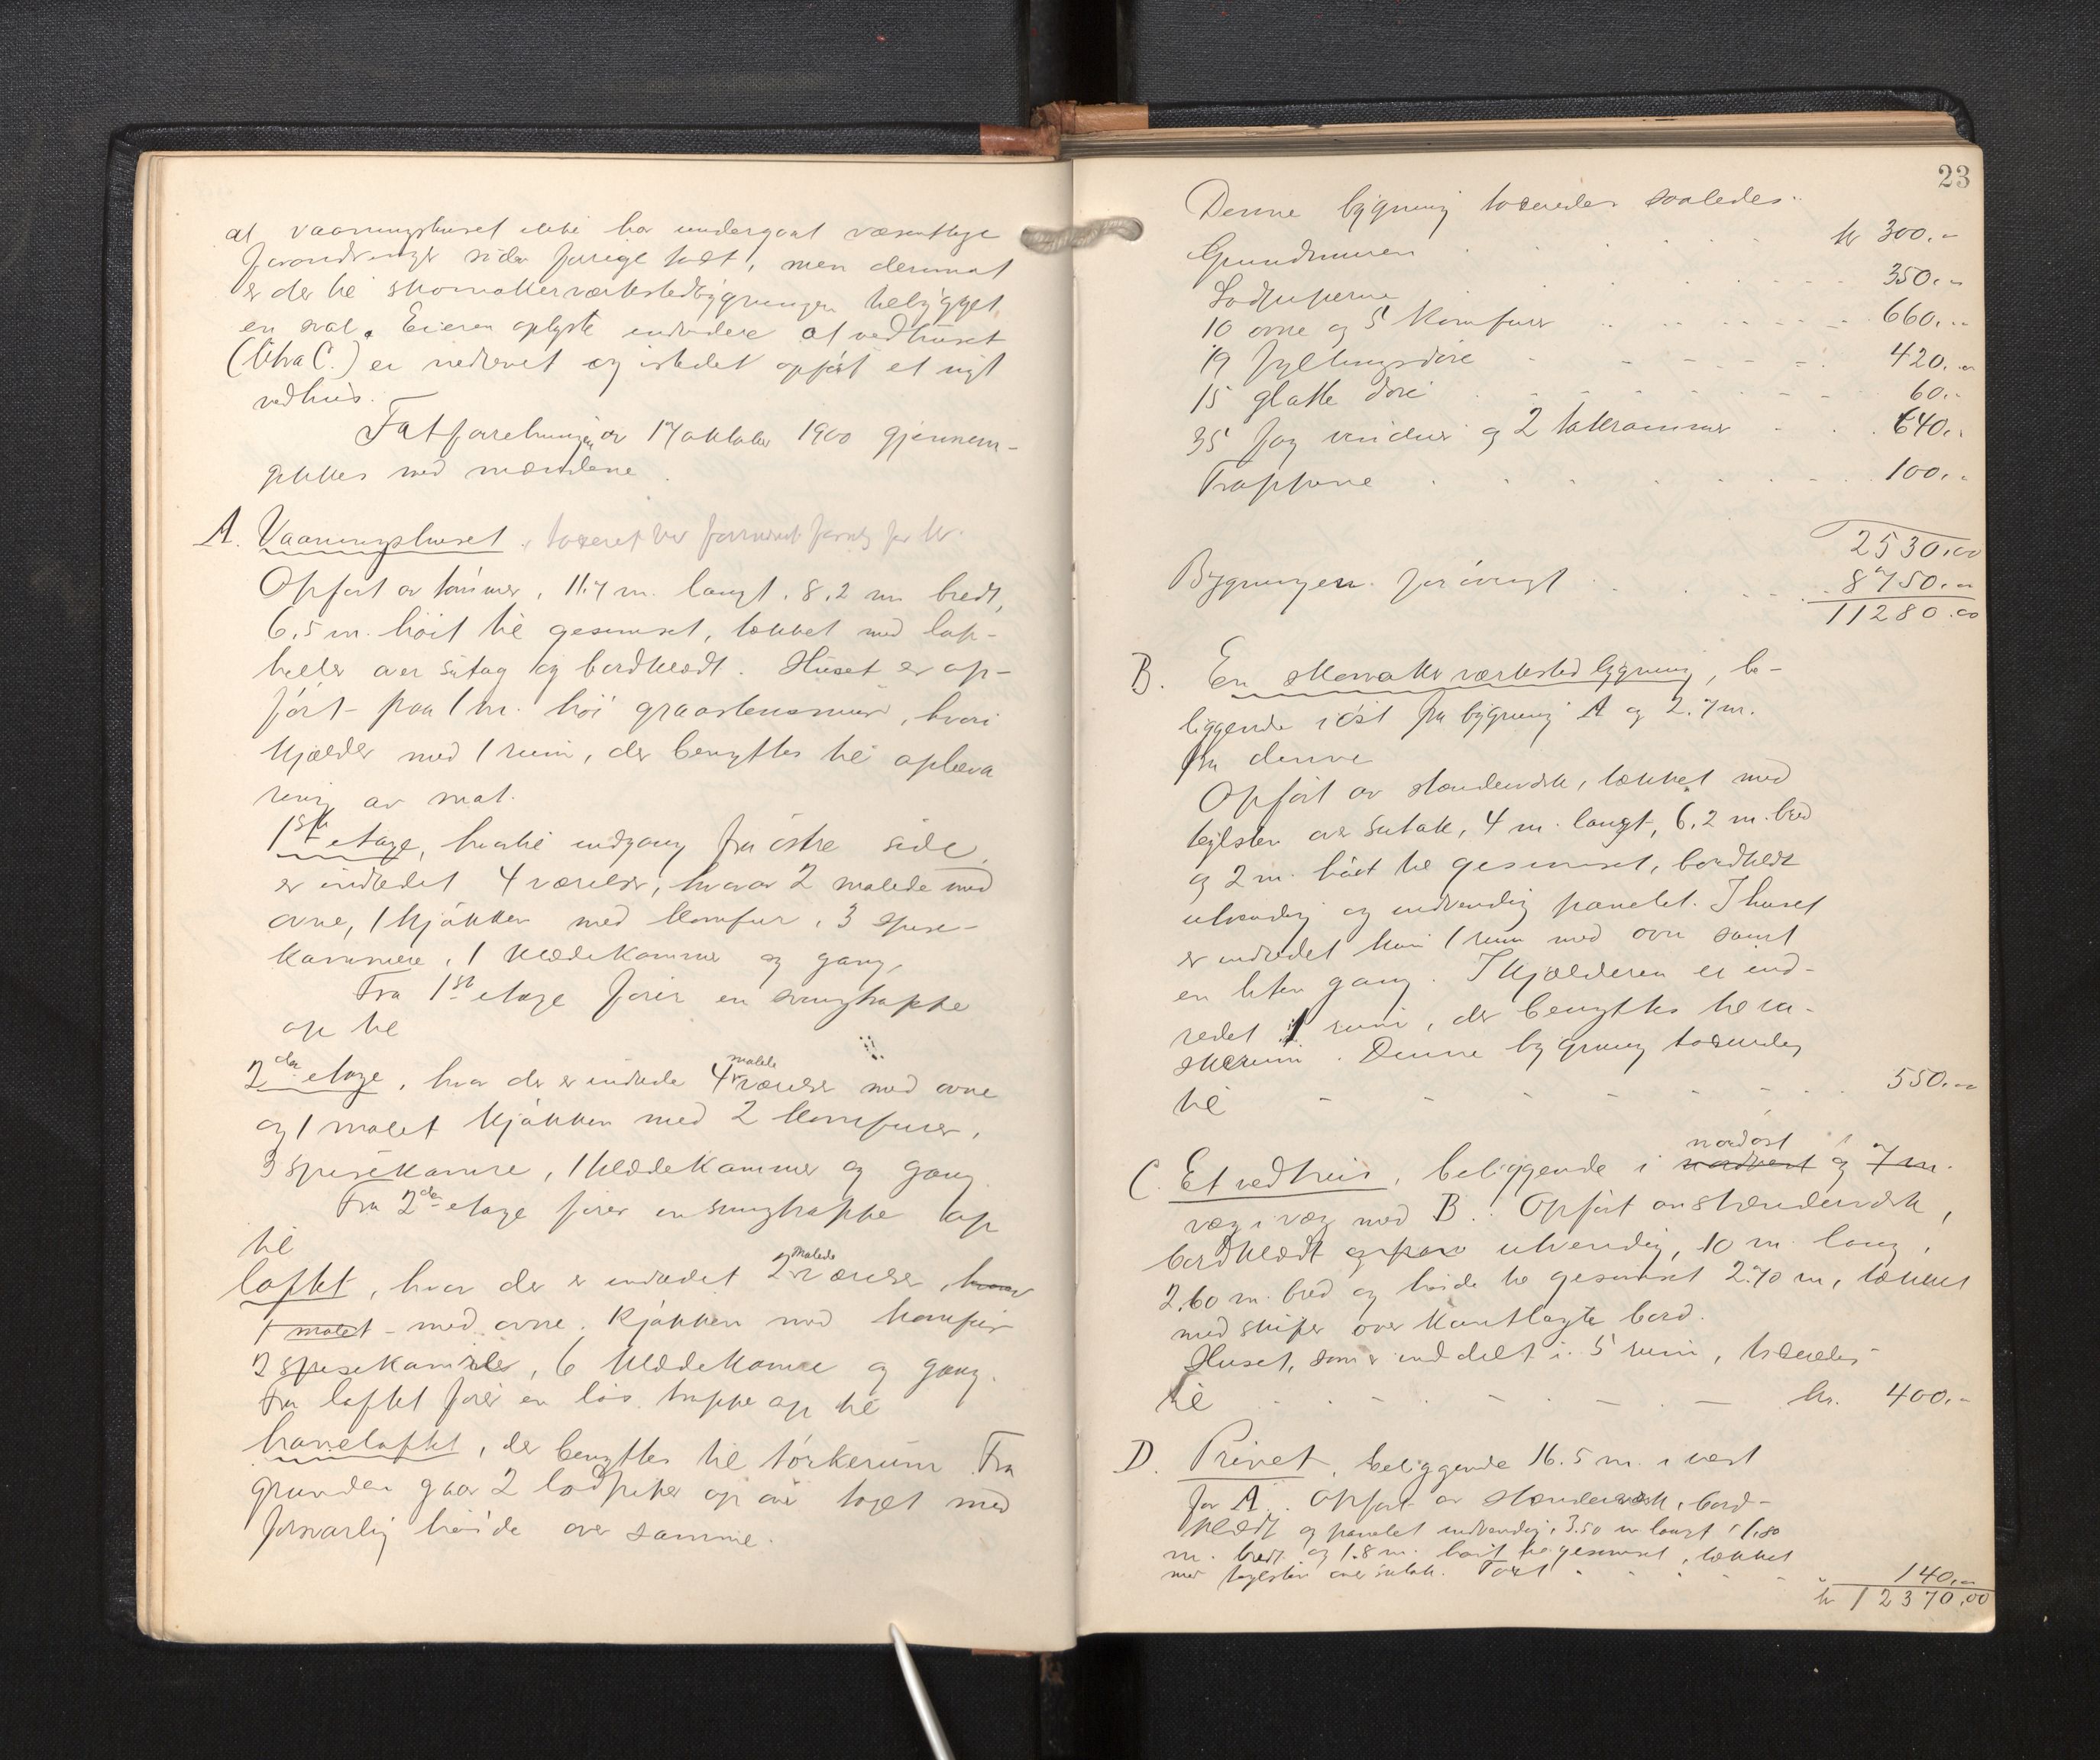 at vaaningshuset ikke har undergaat væsentlige
forandringer siden forrige takst, men derimot
er der til skomakerverkstedbygningen tilbygget
en sval. Eieren oplyste endvidere at vedhuset
(litra C.) er nedrevet og istedet opført et nyt
vedhus.
Takstforretningen av 17 oktober 1900 gjennem-
gikkes med mændene.
A. Vaaningshuset, taxeret ved forrige for kr.
Opført av tømmer, 11.7 m. langt, 8,2 m bredt,
6,5 m. høit til gesimset, tækket med lap-
heller over sutag og bordklædt. Huset er op-
ført paa 1 m. høi graastensmur, hvori
kjælder med 1 rum, der benyttes til opbeva
ring av mat.
1ste etage, hvortil indgang fra østre side,
er indredet 4 værelser, hvorav 2 malede med
ovne, 1 kjøkken med komfur, 3 spise-
kammere, 1 klædekammer og gang,
Fra 1ste etage fører en svingtrappe
op til
2den etage, hvor der er indrede 4 malede værelser med ovne
og 1 malet kjøkken med 2 komfurer,
3 spisekamre, 1 klædekammer og gang.
Fra 2den etage fører en svingtrappe op
til
loftet, hvor der er indredet 2 malede værelser, hvorav
1 malet - med ovne. Kjøkken med komfur
2 spisekamre, 6 klædekamre og gang.
Fra loftet fører en løs trappe op til
haneloftet, der benyttes til tørkerum. Fra
grunden gaar 2 lodpiper op over taget med
forsvarlig høide over samme.
23
Denne bygning taxeredes saaledes:
Grundmuren kr 300,-
Lodpiperne 350,-
10 ovne og 5 komfurer 660,-
19 fyllingsdøre 420,-
15 glatte døre 60,-
35 fag vinduer og 2 takrammer 640,-
Trapperne 100,-
2530,00
Bygningen forøvrigt 8750,-
11280.00
B. En skomakerverkstedbygning, be-
liggende i øst fra bygning A og 2.7 m.
fra denne
Opført av stenderverk, tækket med
teglsten over sutak, 4 m. langt, 6,2 m. bred
og 2 m. høit til gesimset, bordklædt
utvendig og indvendig panelet. I huset
er indredet kun 1 rum med ovn samt
en liten gang. I kjælderen er ind-
redet 1 rum, der benyttes til va-
skerum. Denne bygning taxeredes
til 550,-
C. Et vedhus, beliggende i nordvest nordøst og 7 m.
væg i væg med B. Opført av stenderverk,
bordklædt utvendig, 10 m. lang,
2.60 m. bred og høide til gesimset 2.70 m, tækket
med skifer over kantlagte bord.
Huset, som er inddelt i 5 rum, taxeredes
til kr. 400,-
D. Privet, beliggende 16.5 m. i vest
for A. Opført av stenderverk, bord-
klædt og panelet indvendig, 3.50 m langt, 1,80
m. bredt og 1.8 m. høit til gesimset, tækket
med teglsten over sutak. Taxt 140,-
kr 12370,00